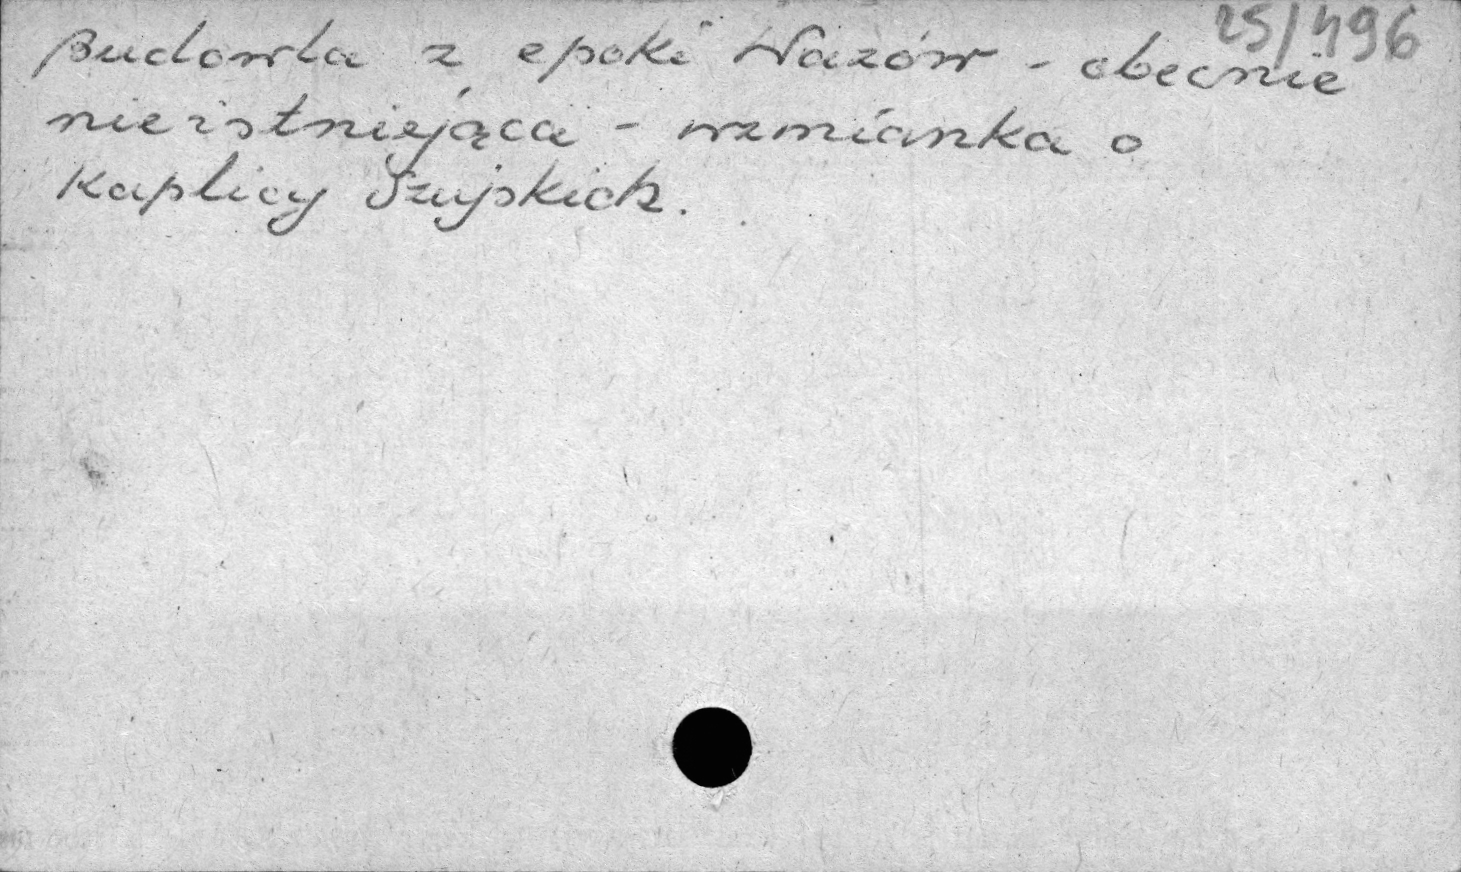 25/496
Budowla z epoki Wazów - obecnie
nieistniejąca - wzmianka o
Kaplicy Szujskich.